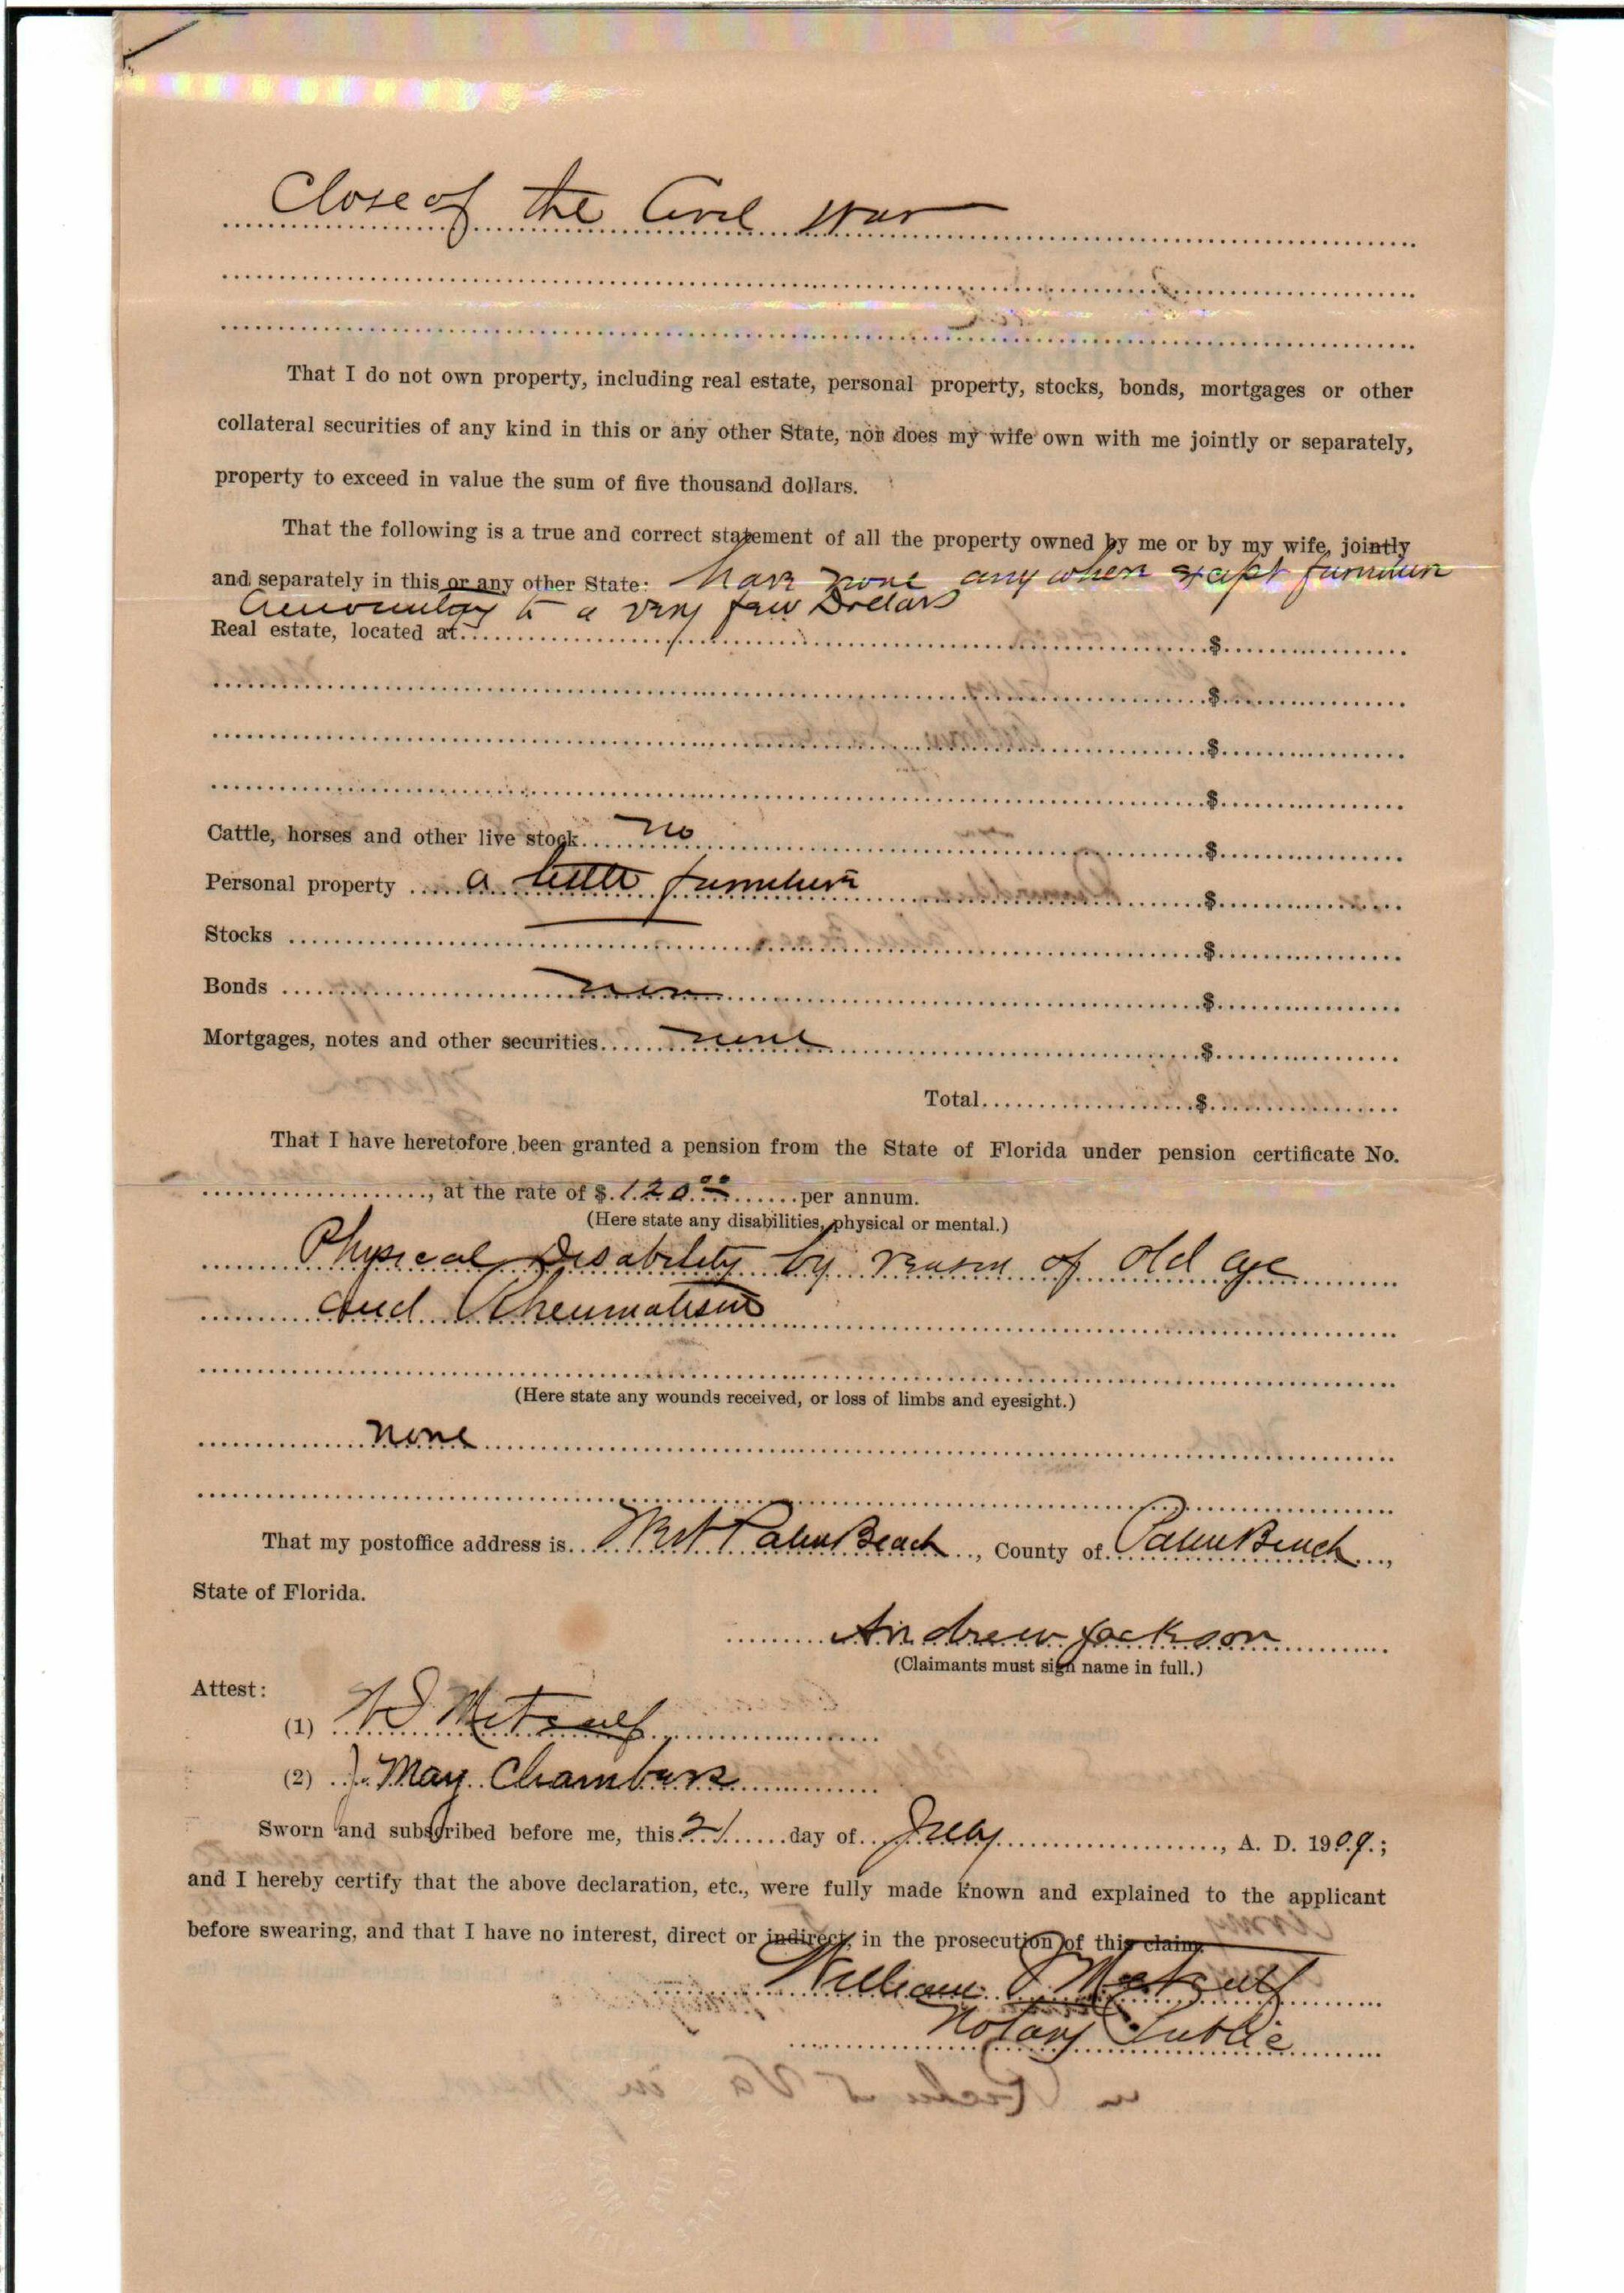 Close of the Civil War
That I do not own property, including real estate, personal property, stocks, bonds, mortgages or other
collateral securities of any kind in this or any other State, nor does my wife own with me jointly or separately,
property to exceed in value the sum of five thousand dollars.
That the following is a true and correct statement of all the property owned by me or by my wife, jointly
and separately in this or any other State: have none anywhere except furniture
Amounting to a very few Dollars
Real estate, located at $
$
$
$
Cattle, horses and other live stock no $
Personal property a little furniture $
Stocks $
Bonds none $
Mortgages, notes and other securities none $
Total $
That I have heretofore been granted a pension from the State of Florida under pension certificate No.
, at the rate of $ 120.00 per annum.
(Here state any disabilities, physical or mental.)
Physical Disability by reason of old age
and Rheumatism
(Here state any wounds received, or loss of limbs and eyesight.)
none
That my postoffice address is West Palm Beach, County of Palm Beach,
State of Florida.
Andrew Jackson
(Claimants must sign name in full.)
Attest:
(1) W I Metcalf
(2) J. May Chambers
Sworn and subscribed before me, this 21 day of July, A. D. 1909.;
and I hereby certify that the above declaration, etc., were fully made known and explained to the applicant
before swearing, and that I have no interest, direct or indirect, in the prosecution of this claim.
William I Metcalf
Notary Public